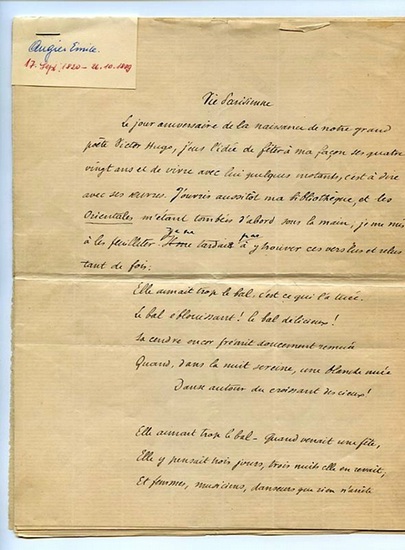 Augier Emile.
17. Sept. 1820 – 26.10.1889
Vie Parisienne
Le jour aniversaire de la naissance de notre grand
poète Victor Hugo, j'eus l'idée de fêter à ma façon ses quatre
vingt ans et de vivre avec lui quelques instants, c'est à dire
avec ses œuvres. J'ouvris aussitôt ma bibliothèque, et les
Orientales m'étant tombées d'abord sous la main, je me mis
à les feuilleter. Je ne tardais pas à y trouver ces vers lus et relus
tant de fois.
Elle aimait trop le bal, c'est ce qui l'a tuée.
Le bal éblouissant! le bal délicieux!
Sa cendre encor frémit doucement remuée
Quand, dans la nuit sereine, une blanche nuée
Danse autour du croissant des cieux!
Elle aimait trop le bal – Quand venait une fête,
Elle y pensait trois jours, trois nuits elle en rêvait,
Et femmes, musiciens, danseurs que rien n'arrête